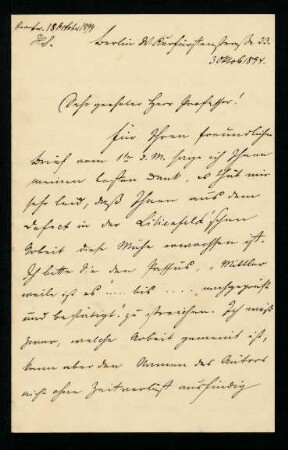 Berlin W. Kurfürstenstraße 33.
30 Okt. 1894.
Sehr geehrter Herr Professor!
Für Ihren freundlichen
Brief vom 1ten d. M. sage ich Ihnen
meinen besten Dank, es thut mir
sehr leid, daß Ihnen aus dem
Defect in der Lilienfeld'schen
Arbeit diese Mühe erwachsen ist.
Ich bitte Sie den Passus, „Mittler
weile ist es" ..... bis ..... nachgeprüft
und bestätigt" zu streichen. Ich weiß
zwar, welche Arbeit gemeint ist,
kann aber den Namen des Autors
nicht ohne Zeitverlust ausfindig